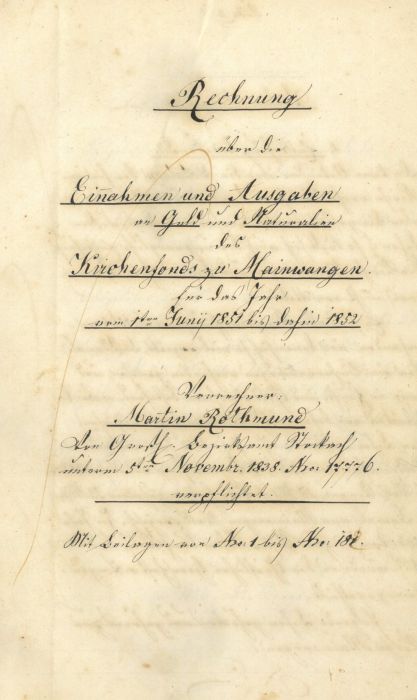 Rechnung
über die
Einnahmen und Ausgaben
an Geld und Naturalien
des
Kirchenfonds zu Mainwangen.
für das Jahr
vom 1ten Junÿ 1851 bis dahin 1852
Verrechner:
Martin Rothmund
Von Großh. Bezirksamt Stockach
unterm 5ten Novembr. 1838. Nro: 17776.
verpflichtet.
Mit Beilagen von Nro. 1 bis Nro: